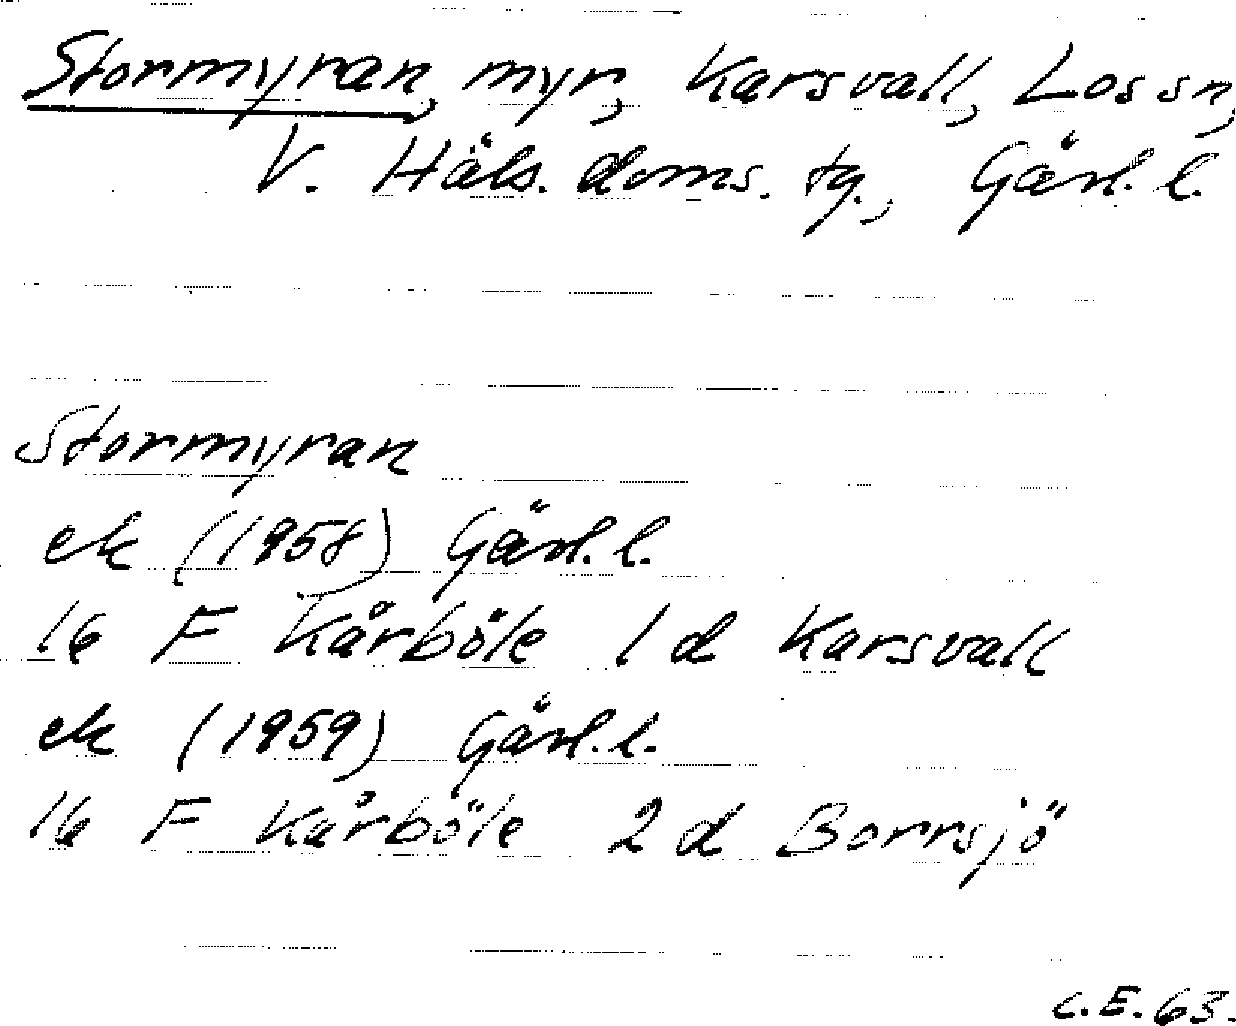 Stormyran, myr, Karsvall, Los sn,
V. Häls. doms. tg., Gävl. l.
Stormyran
ek (1958) Gävl. l.
16 F Kårböle 1 d Karsvall
ek (1959) Gävl. l.
16 F Kårböle 2 d Borrsjö
C.E. 63.